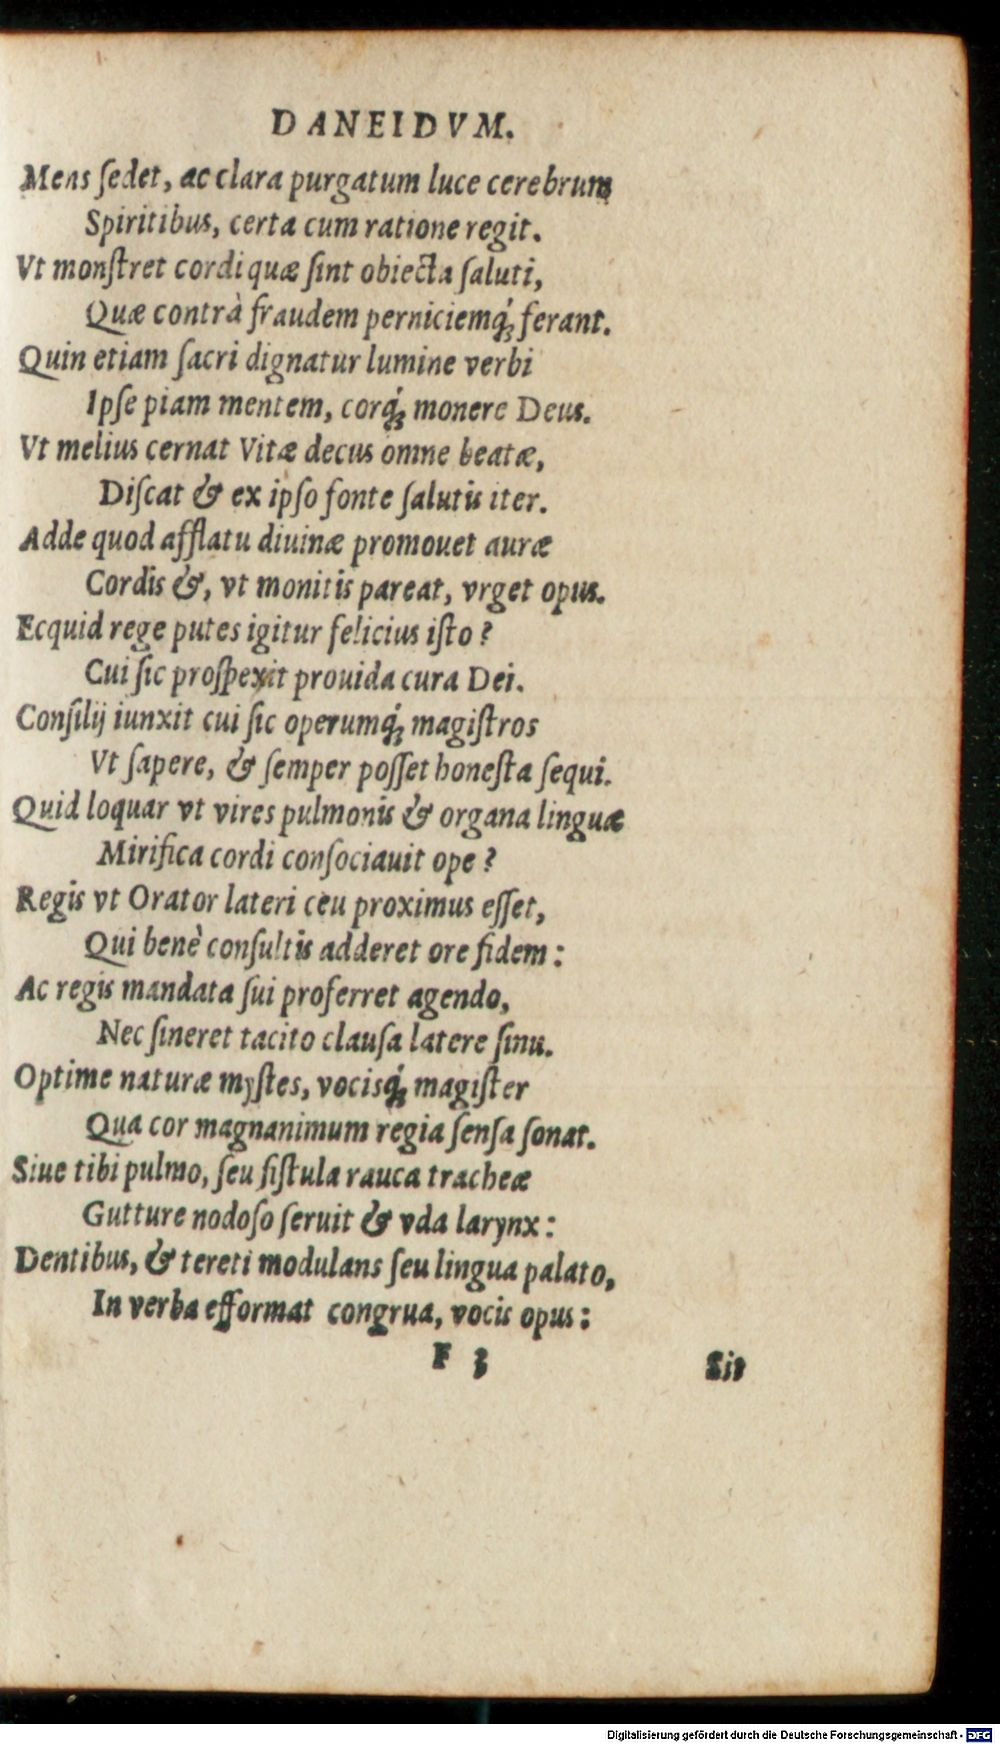 DANEIDVM.
Mens ſedet, ac clara purgatum luce cerebrum
Spiritibus, certa cum ratione regit.
Vt monſtret cordi quæ ſint obiecta ſaluti,
Quæ contrà fraudem perniciemq́; ferant.
Quin etiam ſacri dignatur lumine verbi
Ipſe piam mentem, corq́; monere Deus.
Vt melius cernat Vitæ decus omne beatæ,
Diſcat & ex ipſo fonte ſalutis iter.
Adde quod afflatu diuinæ promouet auræ
Cordis &, vt monitis pareat, vrget opus.
Ecquid rege putes igitur felicius iſto?
Cui ſic proſpexit prouida cura Dei.
Conſilij iunxit cui ſic operumq́; magiſtros
Vt ſapere, & ſemper poſſet honeſta ſequi.
Quid loquar vt vires pulmonis & organa linguæ
Mirifica cordi conſociauit ope?
Regis vt Orator lateri ceu proximus eſſet,
Qui benè conſultis adderet ore fidem:
Ac regis mandata ſui proferret agendo,
Nec ſineret tacito clauſa latere ſinu.
Optime naturæ myſtes, vocisq́; magiſter
Qua cor magnanimum regia ſenſa ſonat.
Siue tibi pulmo, ſeu fiſtula rauca tracheæ
Gutture nodoſo ſeruit & vda larynx:
Dentibus, & tereti modulans ſeu lingua palato,
In verba efformat congrua, vocis opus:
F 3 Sit
Digitalisierung gefördert durch die Deutsche Forschungsgemeinschaft - DFG